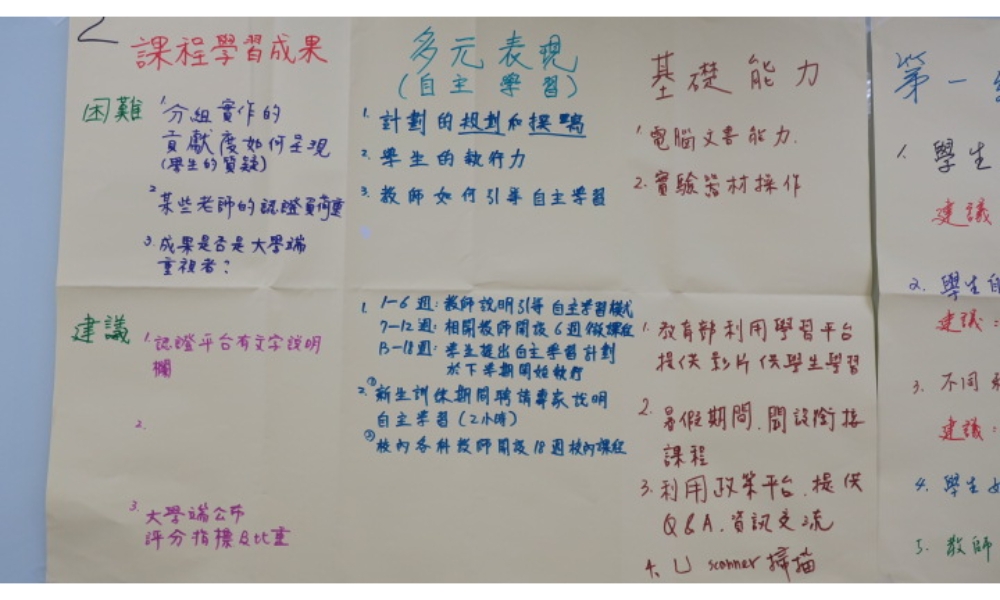 2
課程學習成果
困難
1. 分組實作的
貢獻度如何呈現
(學生的質疑)
2. 某些老師的認證負荷重
3. 成果是否是大學端
重視者?
建議
1. 認證平台有文字說明
欄
2.
3. 大學端公布
評分指標及比重
多元表現
(自主學習)
1. 計劃的規劃和撰寫
2. 學生的執行力
3. 教師如何引導自主學習
1. 1-6週:教師說明引導自主學習模式
7-12週:相關教師開設6週微課程
13-18週:學生提出自主學習計劃
於下半期開始執行
2. ①新生訓休期間聘請專家說明
自主學習(2小時)
②校內各科教師開設18週校內課程
基礎能力
1. 電腦文書能力.
2. 實驗器材操作
1. 教育部利用學習平台
提供影片供學生學習
2. 暑假期間.開設銜接
課程
3. 利用政策平台.提供
Q&A.資訊交流
4. U scanner掃描
第一
1. 學生
建議
2. 學生自
建議:
3. 不同
建議:
4. 學生
5. 教師